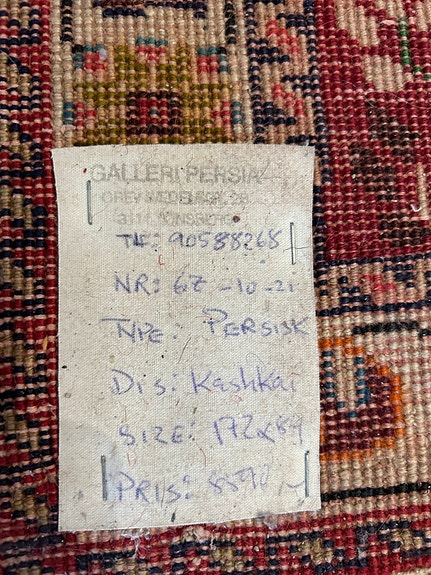 GALLERI PERSIA
GREV WEDELSGT.
3111 TØNSBERG
TLF: 90588268
NR: 67-10-21
TYPE: PERSISK
Dis: Kashkai
SIZE: 172x89
PRIS: